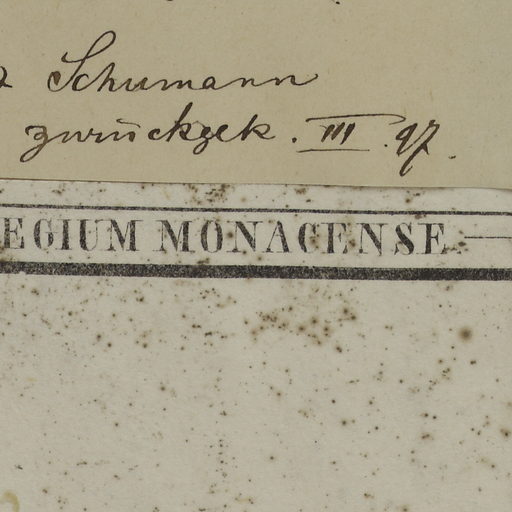 Schumann
zurückgek. III. 97.
EGIUM MONACENSE